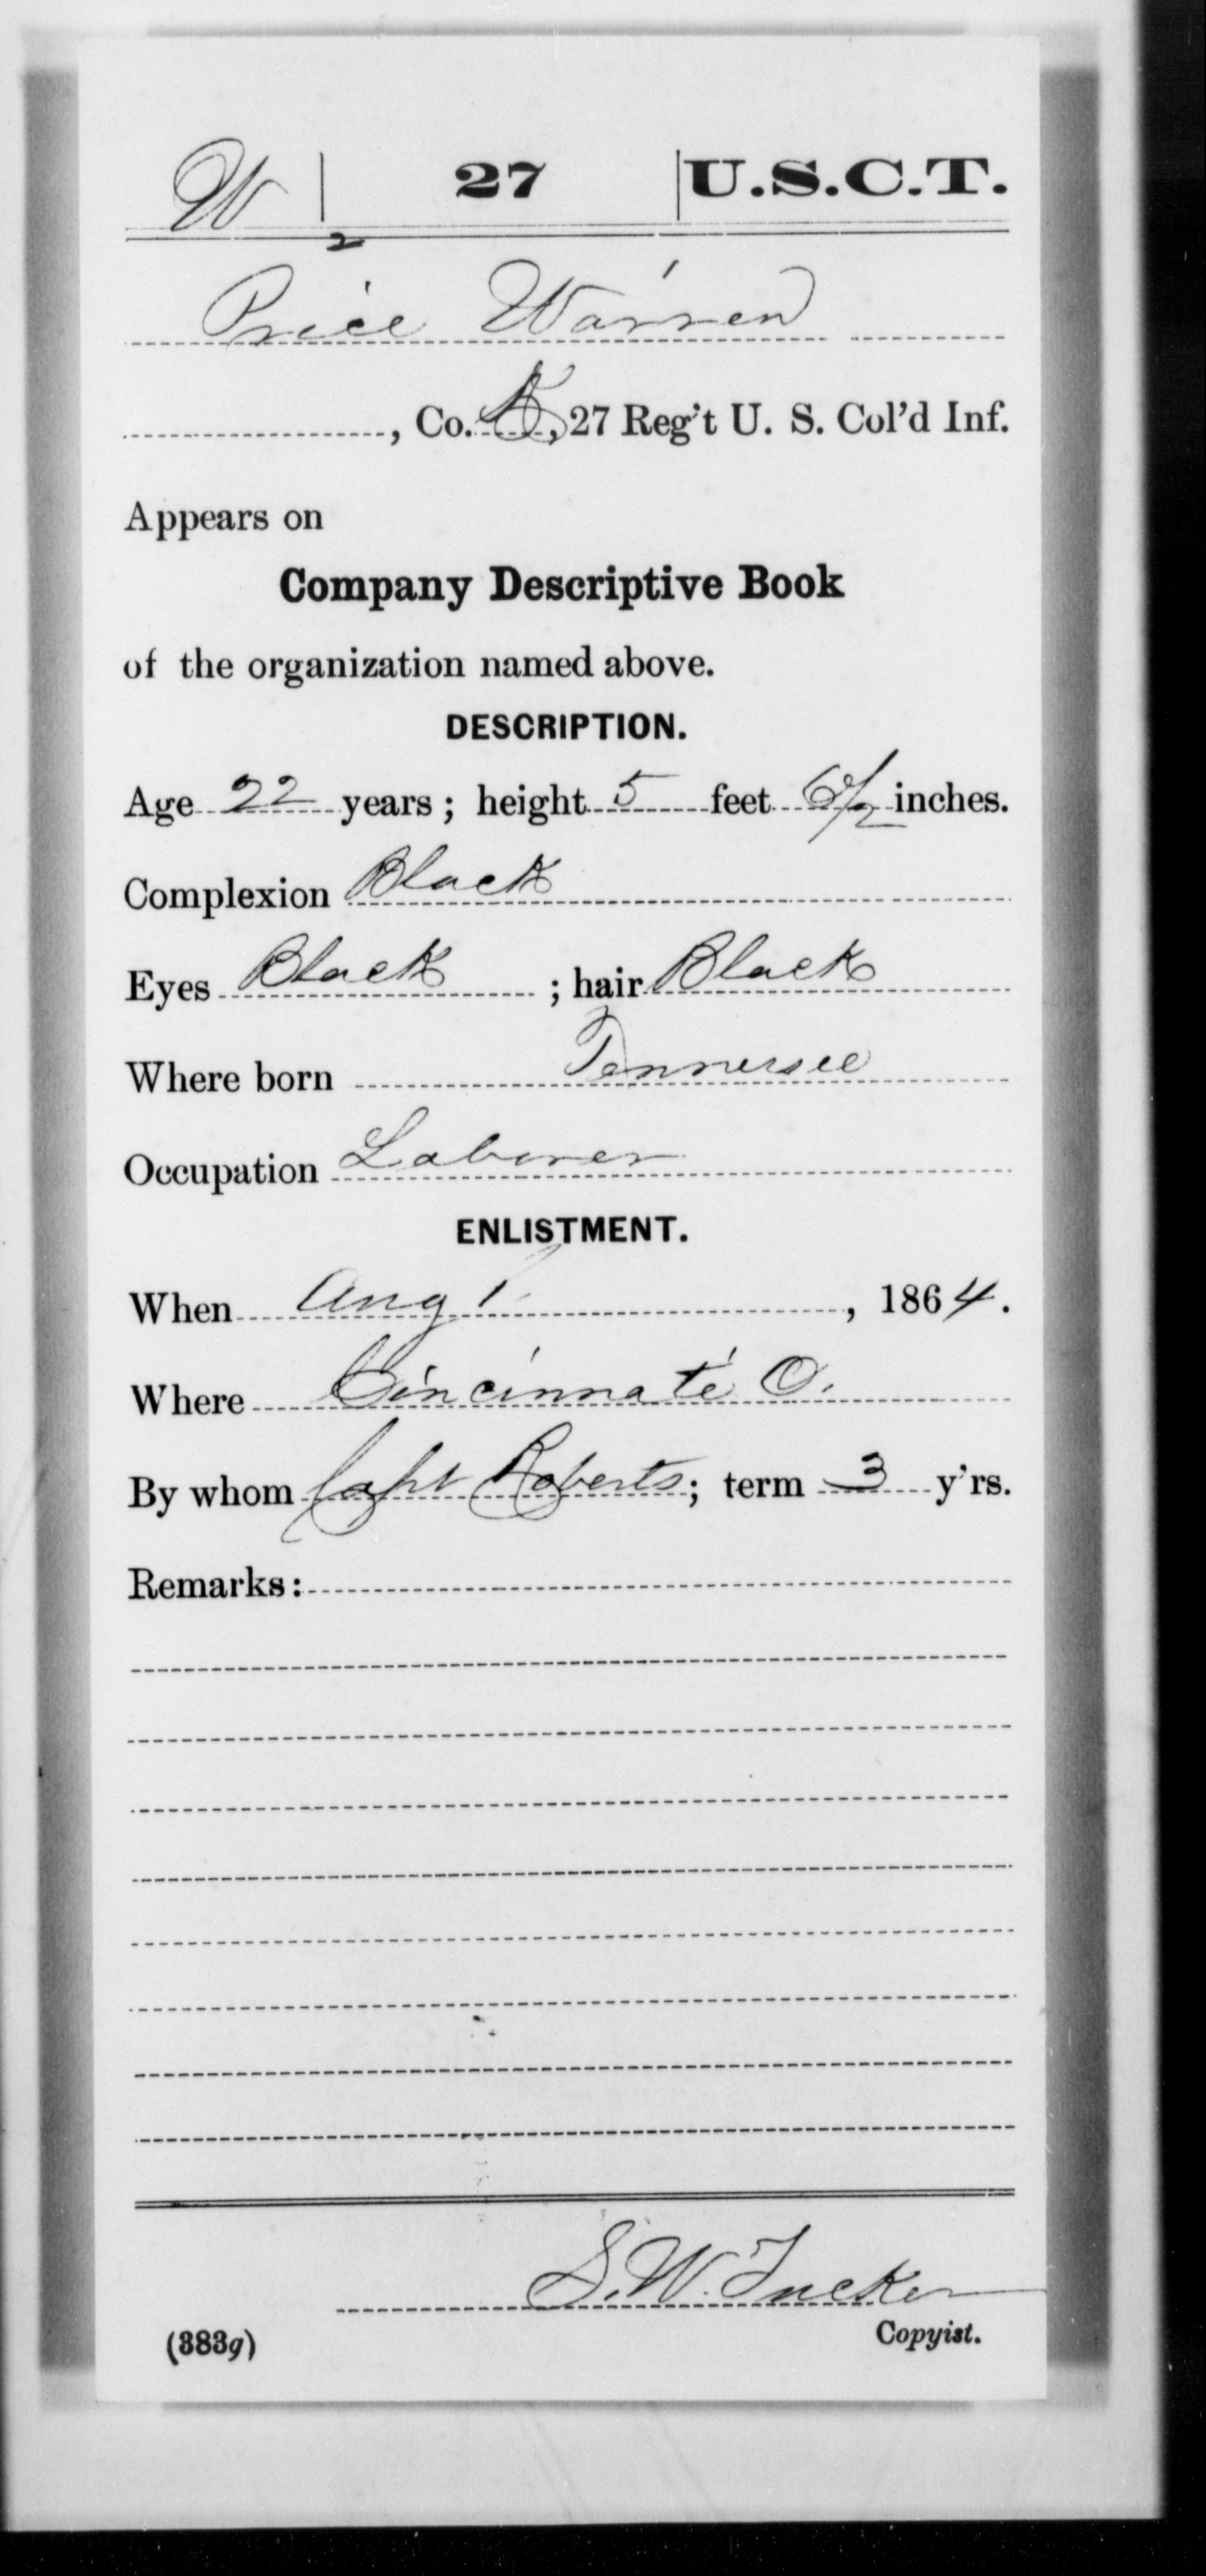 W | 27 | U.S.C.T.
2
Price Warren
, Co. K, 27 Reg't U. S. Col'd Inf.
Appears on
Company Descriptive Book
of the organization named above.
DESCRIPTION.
Age 22 years; height 5 feet 6 1/2 inches.
Complexion Black
Eyes Black ; hair Black
Where born Tennessee
Occupation Laborer
ENLISTMENT.
When Aug 1, 1864.
Where Cincinnati O.
By whom Capt Roberts; term 3 y'rs.
Remarks:
S. W. Tucker
(383g) Copyist.